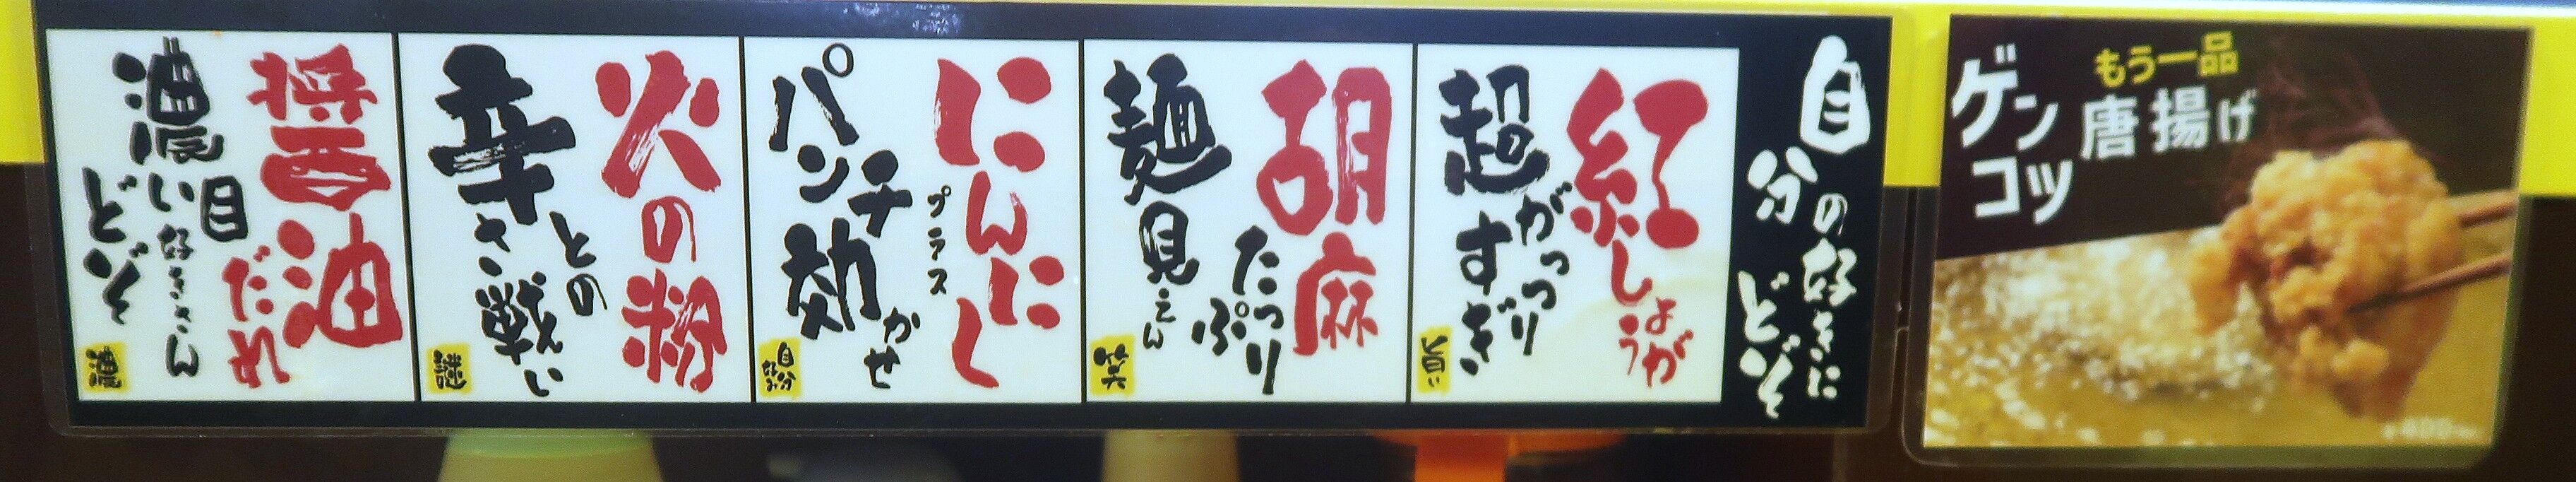 自分の好きに
どどぞ
紅しょうが
がっつり
超すぎ
旨い
胡麻
たっぷり
麺見えん
笑
にんにく
プラス
パンチ効かせ
自分好み
火の粉
との
辛さ戦えい
謎
醤油だれ
濃い目
好きさん
どぞ
濃
もう一品
ゲンコツ
唐揚げ